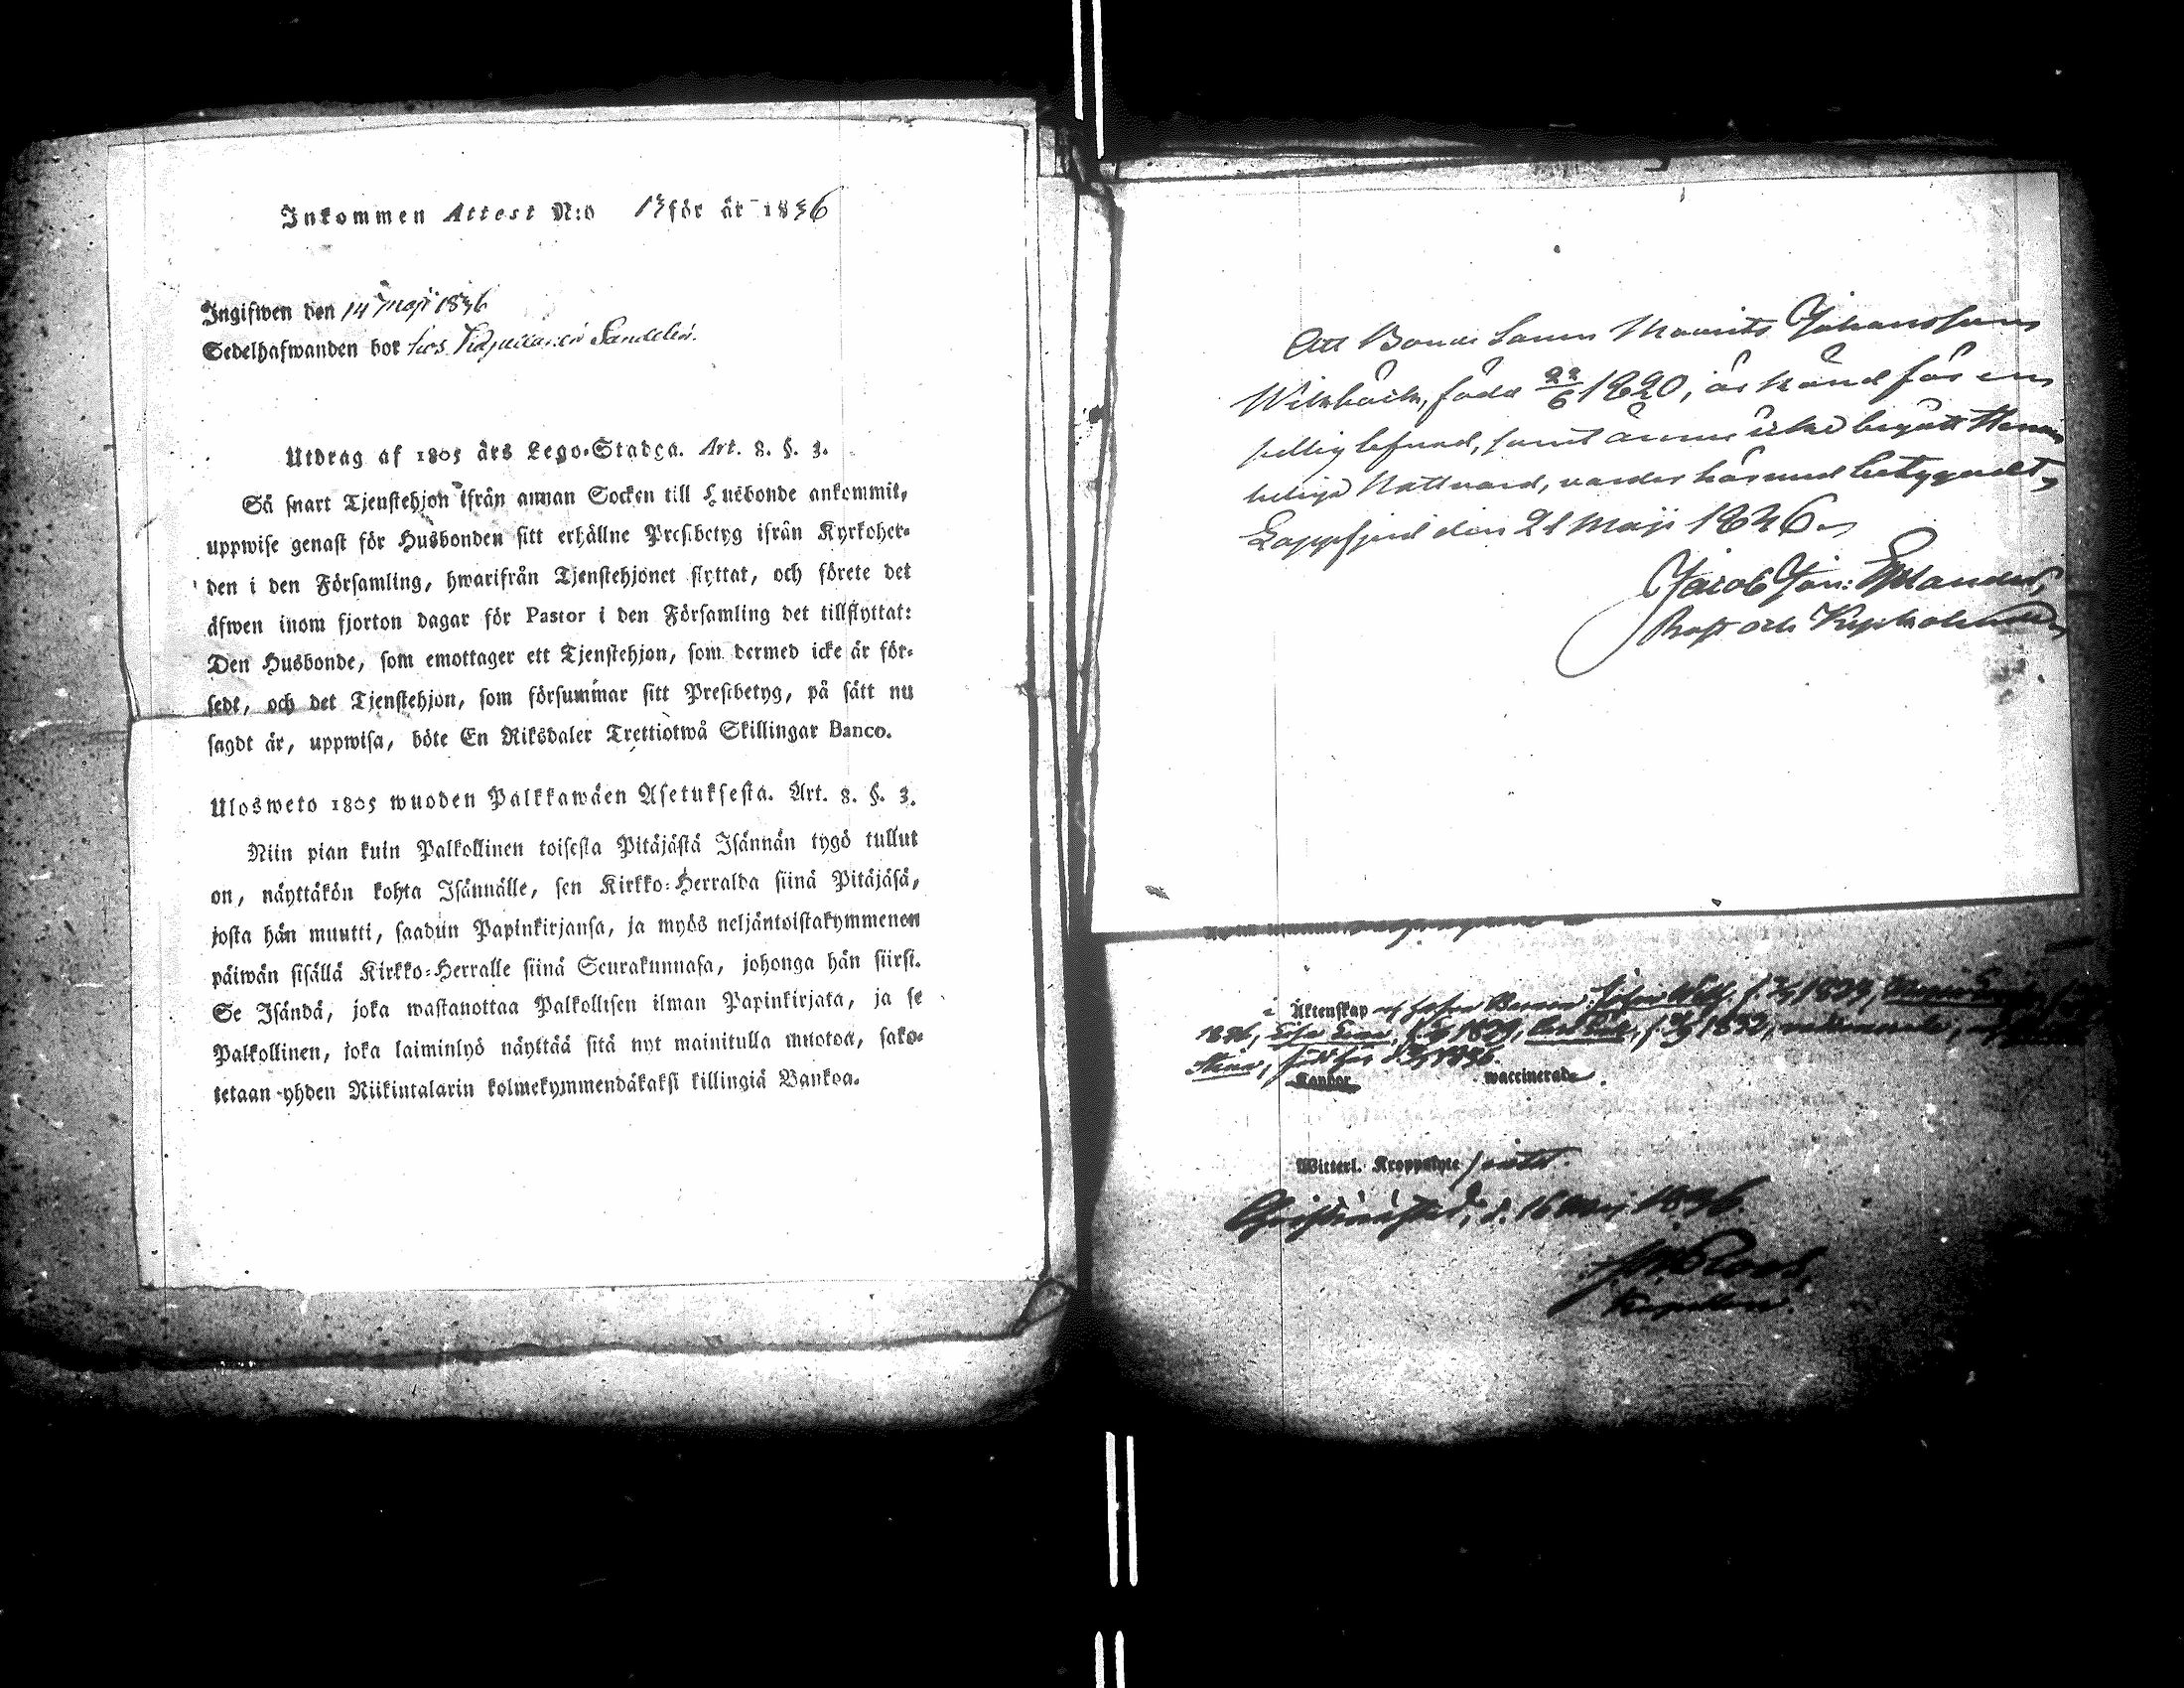 Inkommen Attest N:o 17 för år 1836
Ingifwen den 14 Maji 1836
Sedelhafwanden bor hos Sandelin.
Utdrag af 1805 års Lego-Stadga. Art. 8. §. 3.
Så snart Tjenstehjon ifrån annan Socken till Husbonde ankommit,
uppwise genast för Husbonden sitt erhållne Prestbetyg ifrån Kyrkoher-
den i den Församling, hwarifrån Tjenstehjonet flyttat, och förete det
äfwen inom fjorton dagar för Pastor i den Församling det tillflyttat:
Den Husbonde, som emottager ett Tjenstehjon, som dermed icke är för-
sedt, och det Tjenstehjon, som försummar sitt Prestbetyg, på sätt nu
sagdt är, uppwisa, böte En Riksdaler Trettiotwå Skillingar Banco.
Ulosweto 1805 wuoden Palkkawäen Asetuksesta. Art. 8. §. 3.
Niin pian kuin Palkollinen toisesta Pitäjästä Isännän tygö tullut
on, näyttäkön kohta Isännälle, sen Kirkko-Herralda siinä Pitäjäsä,
josta hän muutti, saadun Papinkirjansa, ja myös neljäntoistakymmenen
päiwän sisällä Kirkko-Herralle siinä Seurakunnasa, johonga hän siirsi.
Se Isändä, joka wastanottaa Palkollisen ilman Papinkirjata, ja se
Palkollinen, joka laiminlyö näyttää sitä nyt mainitulla muotoa, sako-
tetaan yhden Riikintalarin kolmekymmendäkaksi killingiä Bankoa.
Att Bonde Sonen Maurits Johansson
född 22/6 1820, är känd för en
sedlig lefnad, samt ännu icke begått Herrans
heliga Nattvard, varder härmed betygadt,
Lappfjerd den 21 Maji 1836
Jacob Joh: Estlander,
Prost och Kyrkoherde
i Äktenskap 1824,
1826, 1829, 1832,
1836.
Kandar waccinerade.
Witterl. Kroppslyte
Christinestad, d. 16 Maj 1836.
Roos,
Kapellan.